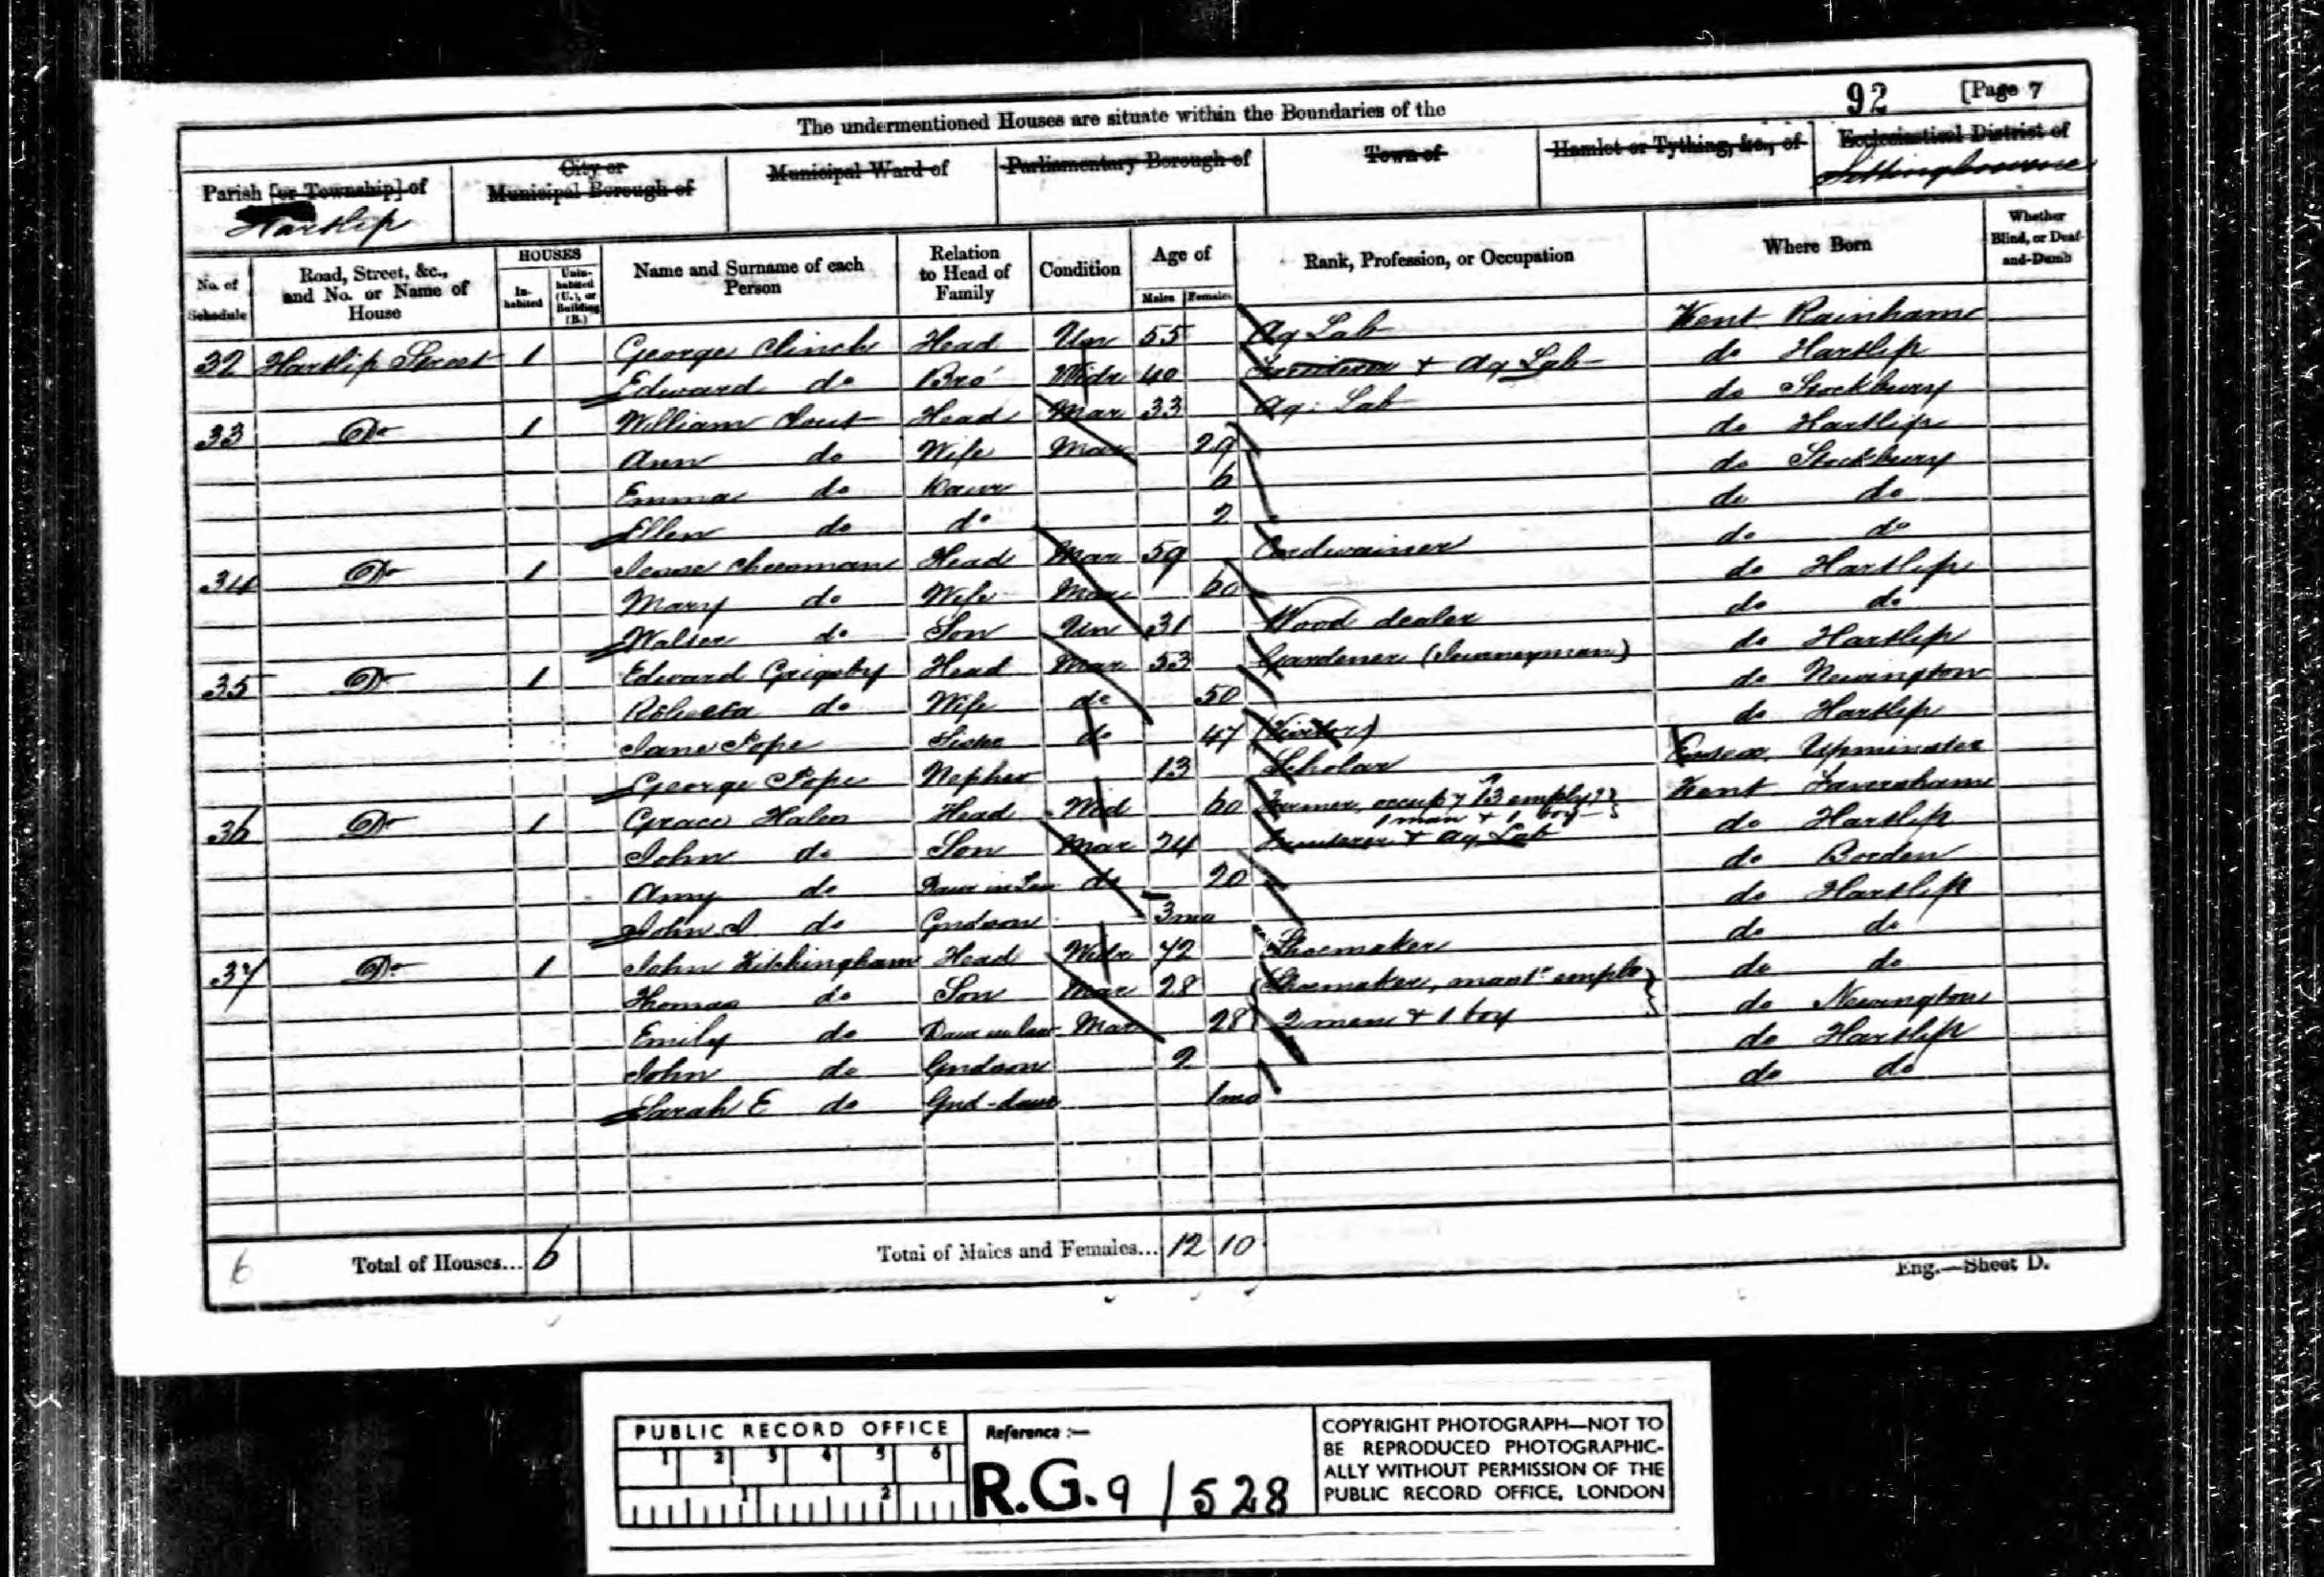 92 [Page 7
The undermentioned Houses are situate within the Boundaries of the
Parish [or Township] of
Hartlip
City or
Municipal Borough of
Municipal Ward of
Parliamentary Borough of
Town of
Hamlet or Tything, &c., of
Ecclesiastical District of
Sittingbourne
No. of
Schedule
Road, Street, &c.,
and No. or Name of
House
HOUSES
In-
habited
Unin-
habited
(U.), or
Building
(B.)
Name and Surname of each
Person
Relation
to Head of
Family
Condition
Age of
Males Females
Rank, Profession, or Occupation
Where Born
Whether
Blind, or Deaf-
and-Dumb
32 Hartlip Street 1 George Clinch Head Un 55 Ag Lab Kent Rainham
Edward do Bro Widr 40 + Ag Lab do Hartlip
33 Do 1 William Head Mar 33 Ag: Lab do Stockbury
Ann do Wife Mar 29 do Hartlip
Emma do Daur 6 do Stockbury
Ellen do do 2 do do
34 Do 1 Jesse Cheesman Head Mar 59 Cordwainer do do
Mary do Wife Mar 60 do Hartlip
Walter do Son Un 31 Wood dealer do do
35 Do 1 Edward Grigsby Head Mar 53 Gardener (Journeyman) do Hartlip
Rebecca do Wife do 50 do Newington
Jane Pope Sister do 47 (Visitor) do Hartlip
George Pope Nephew 13 Scholar Essex Upminster
36 Do 1 Grace Hales Head Wid 60 Farmer occupy 13 employg
1 man + 1 boy Kent Faversham
John do Son Mar 24 Fruiterer + Ag Lab do Hartlip
Amy do Daur in Law do 20 do Borden
John J. do Gndson 3mo do Hartlip
37 Do 1 John Kitchingham Head Widr 72 Shoemaker do do
Thomas do Son Mar 28 Shoemaker, mastr emplo do do
Emily do Daur in law Mar 28 2 men + 1 boy do Newington
John do Gndson 2 do Hartlip
Sarah E do Gnd-daur 1mo do do
6 Total of Houses... 6 Total of Males and Females... 12 10
Eng.—Sheet D.
PUBLIC RECORD OFFICE
1 2 3 4 5 6
1 2
Reference :—
R.G. 9/528
COPYRIGHT PHOTOGRAPH—NOT TO
BE REPRODUCED PHOTOGRAPHIC-
ALLY WITHOUT PERMISSION OF THE
PUBLIC RECORD OFFICE, LONDON